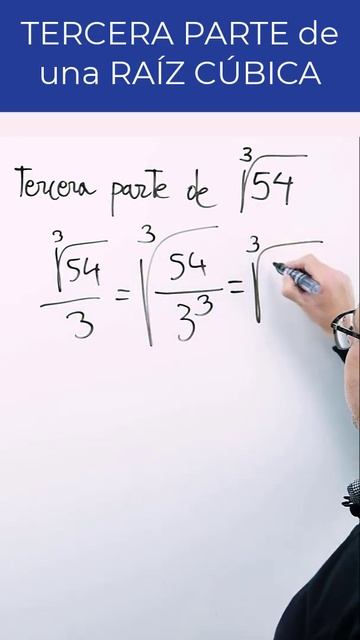 TERCERA PARTE de
una RAÍZ CÚBICA
Tercera parte de ∛54
∛54 / 3 = ∛(54 / 3³) = ∛